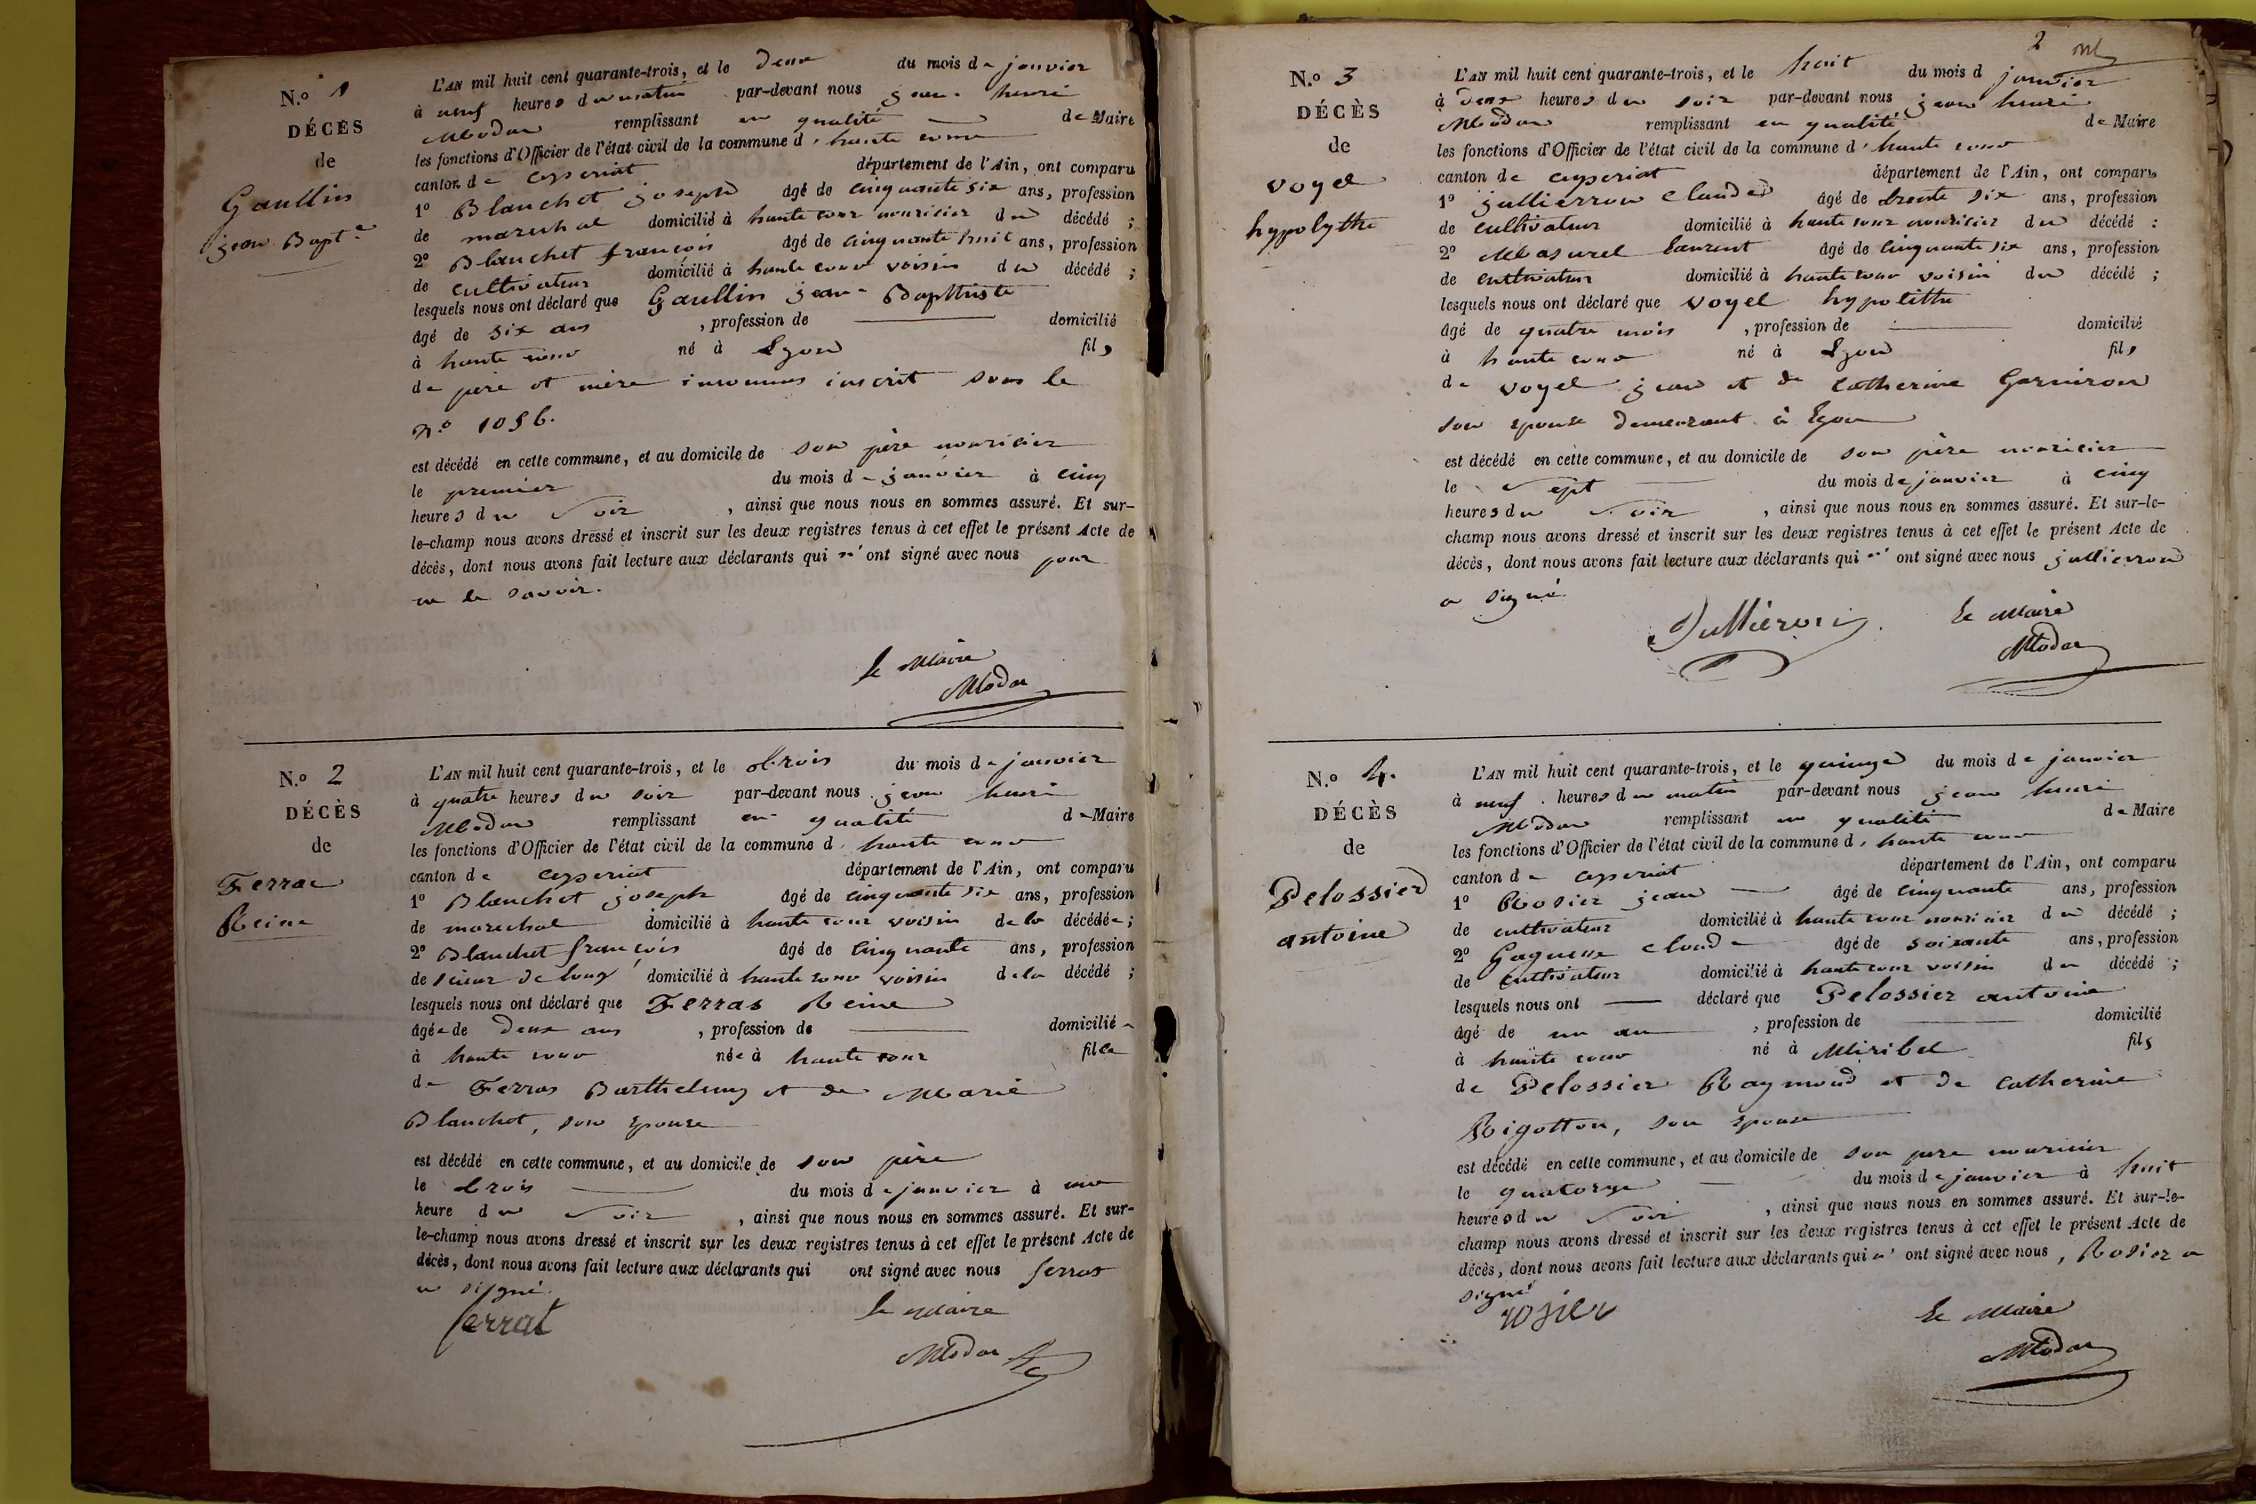 N.o 1
DÉCÈS
de
Gaullin
jean Bapte
L'AN mil huit cent quarante-trois, et le deux du mois de janvier
à neuf heures du matin par-devant nous jean henri
Modas remplissant en qualité de Maire
les fonctions d'Officier de l'état civil de la commune d'hautecour
canton de ceyseriat département de l'Ain, ont comparu
1o Blanchet joseph âgé de cinquante six ans, profession
de marechal domicilié à hautecour nouricier du décédé ;
2o Blanchet françois âgé de cinquante huit ans, profession
de cultivateur domicilié à hautecour voisin du décédé ;
lesquels nous ont déclaré que Gaullin jean Bapthiste
âgé de six ans , profession de domicilié
à hautecour né à Lyon fils
de père et mère inconnus inscrit sous le
No 1056.
est décédé en cette commune, et au domicile de son père nouricier
le premier du mois de janvier à cinq
heures du soir , ainsi que nous nous en sommes assuré. Et sur-
le-champ nous avons dressé et inscrit sur les deux registres tenus à cet effet le présent Acte de
décès, dont nous avons fait lecture aux déclarants qui n'ont signé avec nous pour
ne le savoir.
le Maire
Modas
N.o 2
DÉCÈS
de
Ferrae
Reine
L'AN mil huit cent quarante-trois, et le trois du mois de janvier
à quatre heures du soir par-devant nous jean henri
Modas remplissant en qualité de Maire
les fonctions d'Officier de l'état civil de la commune d'hautecour
canton de ceyseriat département de l'Ain, ont comparu
1o Blanchet joseph âgé de cinquante six ans, profession
de marechal domicilié à hautecour voisin de la décédée ;
2o Blanchet françois âgé de cinquante ans, profession
de scieur de long domicilié à hautecour voisin de la décédé ;
lesquels nous ont déclaré que Ferras Reine
âgée de deux ans , profession de domiciliée
à hautecour née à hautecour fille
de Ferras Barthelemy et de Marie
Blanchet, son epouse
est décédé en cette commune, et au domicile de son père
le trois du mois de janvier à une
heure du soir , ainsi que nous nous en sommes assuré. Et sur-
le-champ nous avons dressé et inscrit sur les deux registres tenus à cet effet le présent Acte de
décès, dont nous avons fait lecture aux déclarants qui ont signé avec nous ferras
a signé.
ferrat
le Maire
Modas
2
N.o 3
DÉCÈS
de
Voyel
hypolythe
L'AN mil huit cent quarante-trois, et le huit du mois d janvier
à deux heures du soir par-devant nous jean henri
Modas remplissant en qualité de Maire
les fonctions d'Officier de l'état civil de la commune d'hautecour
canton de ceyseriat département de l'Ain, ont comparu
1o jullierron Claude âgé de trente six ans, profession
de cultivateur domicilié à hautecour nouricier du décédé :
2o Masurel laurent âgé de cinquante six ans, profession
de cultivateur domicilié à hautecour voisin du décédé ;
lesquels nous ont déclaré que Voyel hypolitthe
âgé de quatre mois , profession de domicilié
à hautecour né à Lyon fils
de Voyel jean et de Catherine Garniron
son epouse demeurant à Lyon
est décédé en cette commune, et au domicile de son père nouricier
le sept du mois de janvier à cinq
heures du soir , ainsi que nous nous en sommes assuré. Et sur-le-
champ nous avons dressé et inscrit sur les deux registres tenus à cet effet le présent Acte de
décès, dont nous avons fait lecture aux déclarants qui n'ont signé avec nous jullierron
a signé.
Julliéron
Le Maire
Modas
N.o 4.
DÉCÈS
de
Pelossier
antoine
L'AN mil huit cent quarante-trois, et le quinze du mois de janvier
à neuf heures du matin par-devant nous jean henri
Modas remplissant en qualité de Maire
les fonctions d'Officier de l'état civil de la commune d'hautecour
canton de ceyseriat département de l'Ain, ont comparu
1o Rosier jean âgé de cinquante ans, profession
de cultivateur domicilié à hautecour nouricier du décédé ;
2o Gagneux Claude âgé de soixante ans, profession
de cultivateur domicilié à hautecour voisin du décédé ;
lesquels nous ont déclaré que Pelossier antoine
âgé de un an , profession de domicilié
à hautecour né à Miribel fils
de Pelossier Raymond et de Catherine
Rigotton, son epouse
est décédé en cette commune, et au domicile de son père nouricier
le quatorze du mois de janvier à huit
heures du soir , ainsi que nous nous en sommes assuré. Et sur-le-
champ nous avons dressé et inscrit sur les deux registres tenus à cet effet le présent Acte de
décès, dont nous avons fait lecture aux déclarants qui n'ont signé avec nous, Rosier a
signé
rosier
Le Maire
Modas